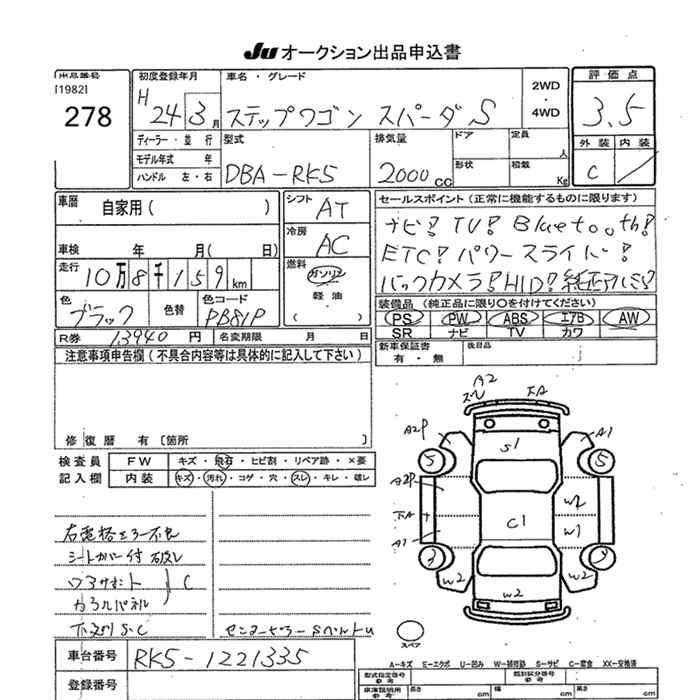 JU オークション出品申込書
出品番号
[1982]
278
初度登録年月
H 24 3 月
車名・グレード
ステップワゴン スパーダ S
2WD
・
4WD
評価点
3.5
外装 内装
C
ディーラー・並行
モデル年式 年
ハンドル 左・右
型式
DBA-RK5
排気量
2000 cc
ドア
定員 人
形状
積載 Kg
車歴
自家用( )
車検 年 月( 日)
走行
10万8千159 km
色
ブラック
色替
色コード
PB81P
シフト
AT
冷房
AC
燃料
ガソリン
軽油
( )
セールスポイント(正常に機能するものに限ります)
ナビ! TV! Bluetooth!
ETC! パワースライド!
バックカメラ! HID! 純正アルミ!
装備品(純正品に限り○を付けてください)
PS PW ABS エアB AW
SR ナビ TV カワ
R券 13940 円
名変期限 月 日
新車保証書
有・無
後日品
注意事項申告欄(不具合内容等は具体的に記入して下さい)
修復歴 有〔箇所 〕
検査員
記入欄
FW キズ・飛石・ヒビ割・リペア跡・×要
内装 キズ・汚れ・コゲ・穴・スレ・キレ・破レ
シートカバー付
C
S.C
A2
A2P
A1
S1
5
5
A2P
W2
C1
W1
A1
W2
W2
W2
スペア
車台番号
RK5-1221335
登録番号
A-キズ E-エクボ U-凹み W-補修跡 S-サビ C-腐食 XX-交換済
型式指定番号
参考
類別区分番号
参考
車庫証明用
参考
長さ cm
幅 cm
高さ cm